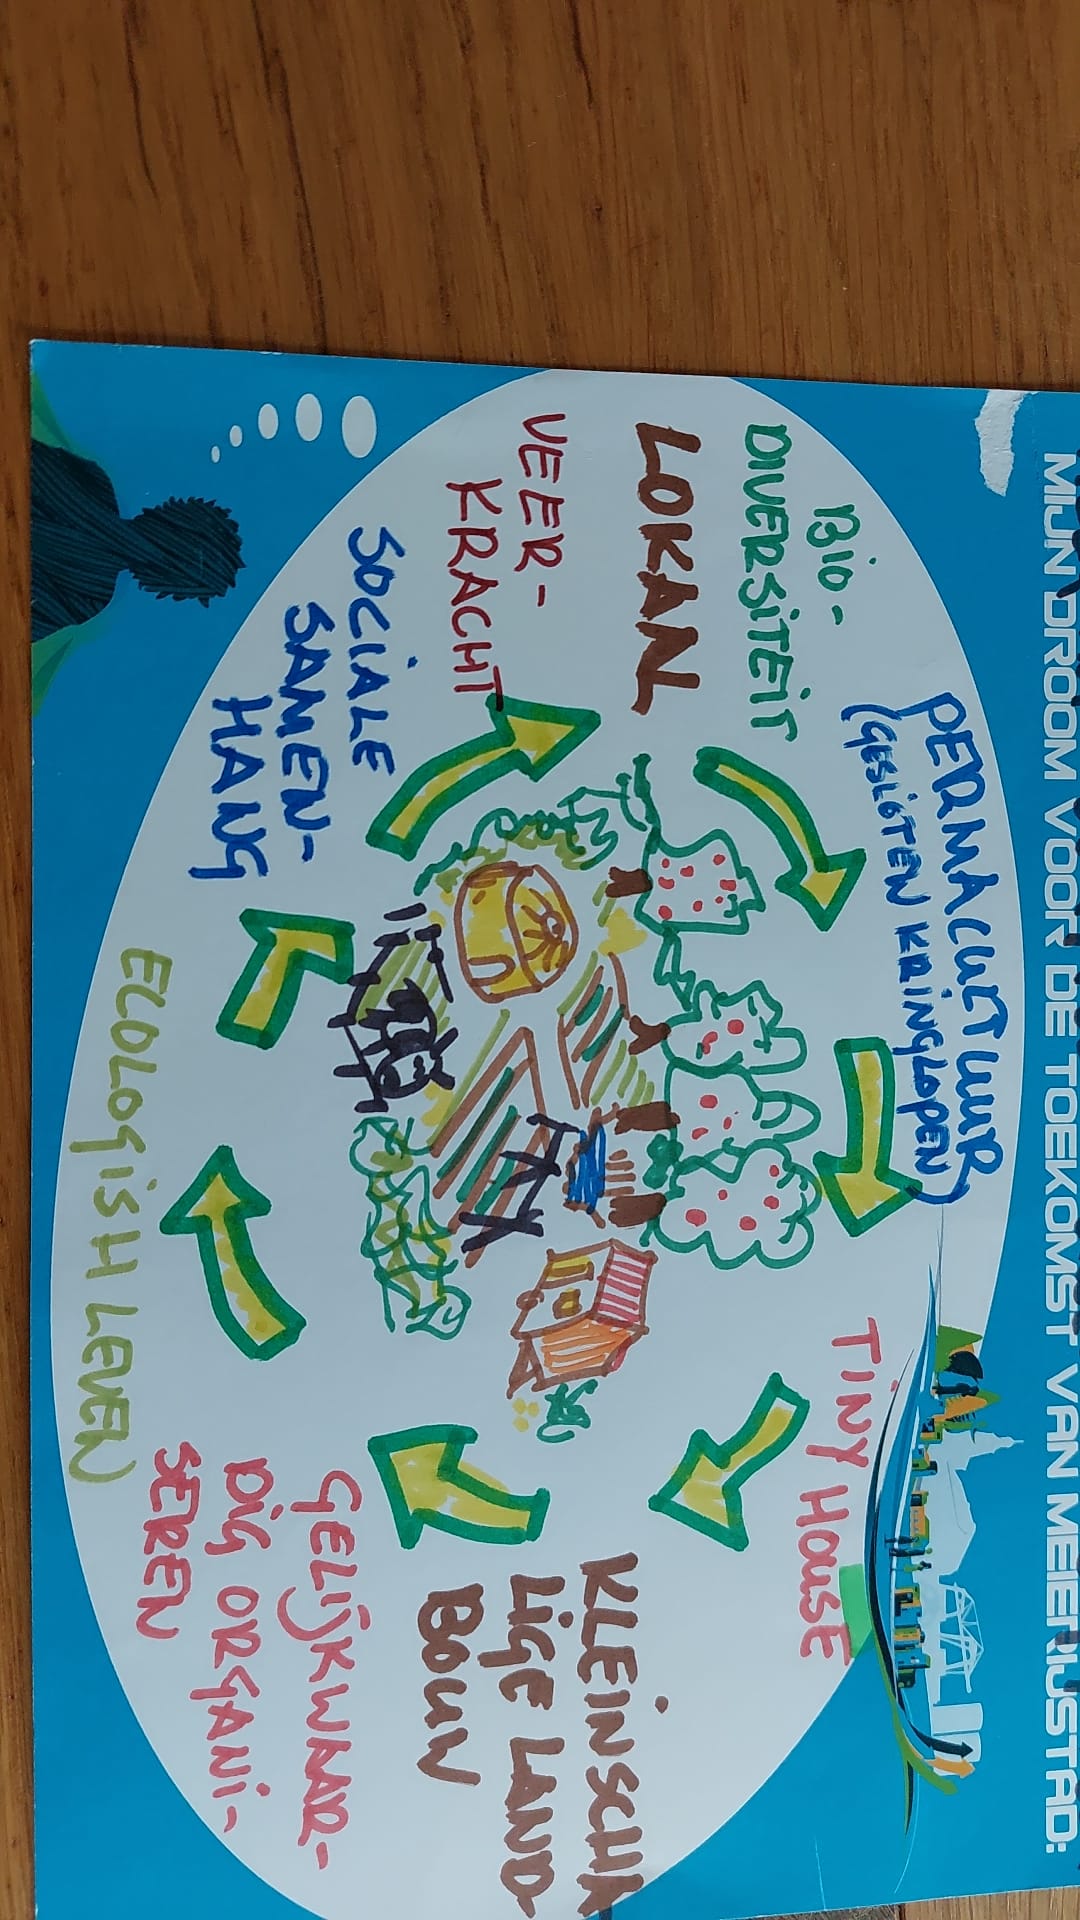 MIJN DROOM VOOR DE TOEKOMST VAN MEERIJSTAD:
PERMACULTUUR
(GESLOTEN KRINGLOPEN)
BIO-
DIVERSITEIT
LOKAAL
VEER-
KRACHT
SOCIALE
SAMEN-
HANG
ECOLOGISH LEVEN
TINY HOUSE
KLEINSCHA
LIGE LAND
BOUW
GELIJKWAAR-
DIG ORGANI-
SEREN